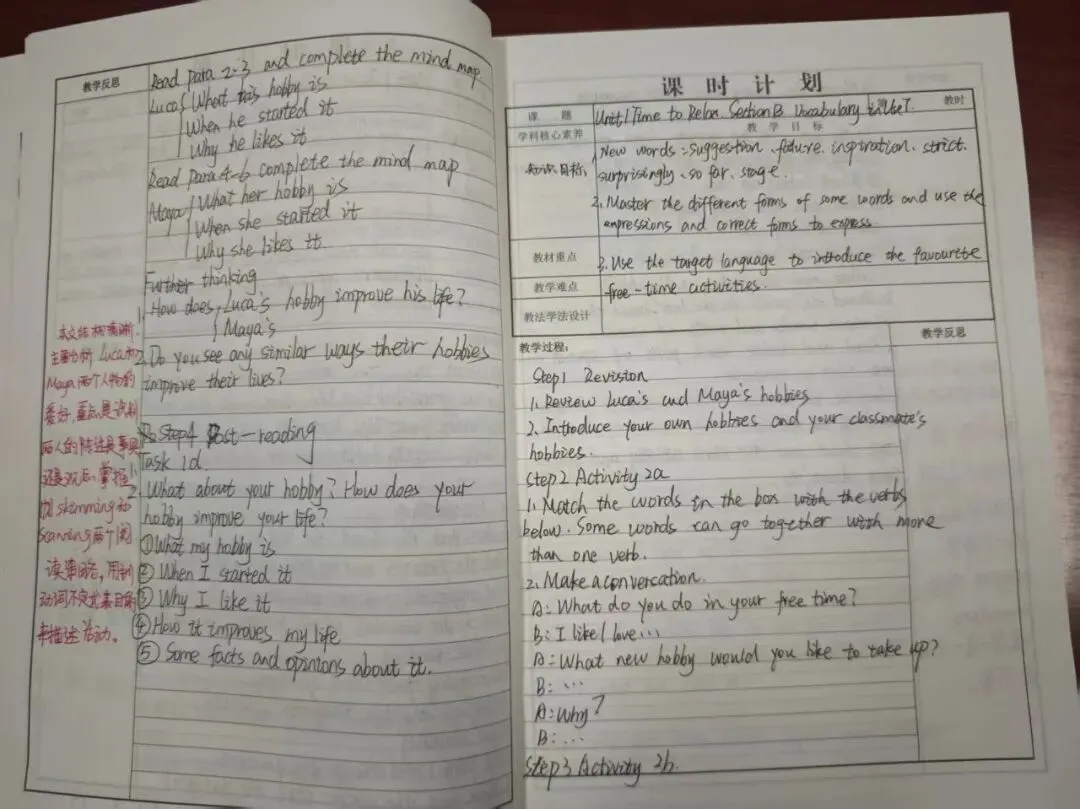 教学反思
Read para 2-3 and complete the mind map
Luca What his hobby is
When he started it
Why he likes it
Read Para 4-6 complete the mind map
Maya What her hobby is
When she started it
Why she likes it
Further thinking
1. How does Luca's hobby improve his life?
Maya's
2. Do you see any similar ways their hobbies
improve their lives?
Step4 Post-reading
1. Task 1d.
2. What about your hobby? How does your
hobby improve your life?
① What my hobby is
② When I started it
③ Why I like it
④ How it improves my life
⑤ Some facts and opinions about it.
本文结构清晰,
主要分析 Luca和
Maya两个人物的
爱好,重点是识别
两人的陈述是事实
还是观点,掌握
skimming和
Scanning两个阅
读策略,用到
动词不定式来目的
描述活动。
课时计划
课题 Unit1 Time to Relax Section B Vocabulary in Use 教时
学科核心素养 教学目标
知识目标: 1. New words: suggestion, failure, inspiration, strict,
surprisingly, so far, stage.
2. Master the different forms of some words and use the
expressions and correct forms to express.
教材重点 3. Use the target language to introduce the favourite
教学难点 free-time activities.
教法学法设计
教学过程: 教学反思
Step1 Revision
1. Review Luca's and Maya's hobbies
2. Introduce your own hobbies and your classmate's
hobbies.
Step2 Activity 2a
1. Match the words in the box with the verbs
below. Some words can go together with more
than one verb.
2. Make a conversation.
A: What do you do in your free time?
B: I like/love...
A: What new hobby would you like to take up?
B: ...
A: Why?
B: ...
Step3 Activity 2b